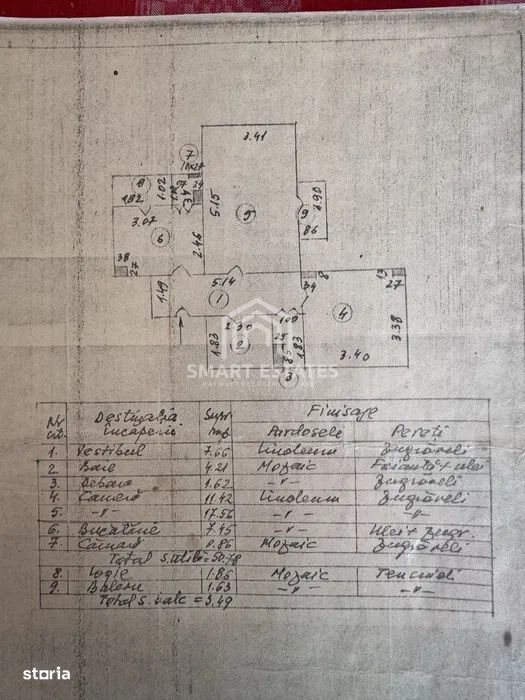 3.41
7
10x27
8
1.02
24
1.82
3.07
5.15
9
1.90
86
6
2.46
38
27
5.14
8
13
1.49
1
34
27
4
2.30
100
1.83
2
25
85
1.83
3.38
3
3.40
SMART ESTATES
Nr. crt. Destinația încăperii Supr. mp. Finisaje
Pardoseli Pereți
1. Vestibul 7.66 Linoleum Zugrăveli
2. Baie 4.21 Mozaic Faianță+ulei
3. Debara 1.62 -"- Zugrăveli
4. Cameră 11.42 Linoleum Zugrăveli
5. -"- 17.56 -"- -"-
6. Bucătărie 7.45 -"- Ulei+zugr.
7. Cămară 0.86 Mozaic Zugrăveli
Total s. utilă = 50.78
8. Logie 1.86 Mozaic Tencuieli
9. Balcon 1.63 -"- -"-
Total s. balc = 3.49
storia
storia